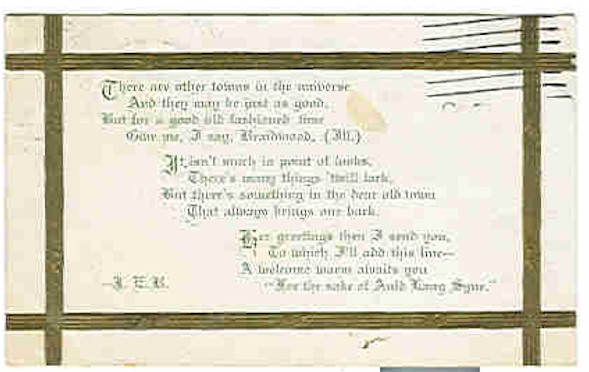 There are other towns in the universe
And they may be just as good,
But for a good old fashioned time
Give me, I say, Braidwood, (Ill.)
It isn't much in point of looks,
There's many things 'twill lack,
But there's something in the dear old town
That always brings one back.
Her greetings then I send you,
To which I'll add this line—
A welcome warm awaits you
"For the sake of Auld Lang Syne."
—J. E. B.